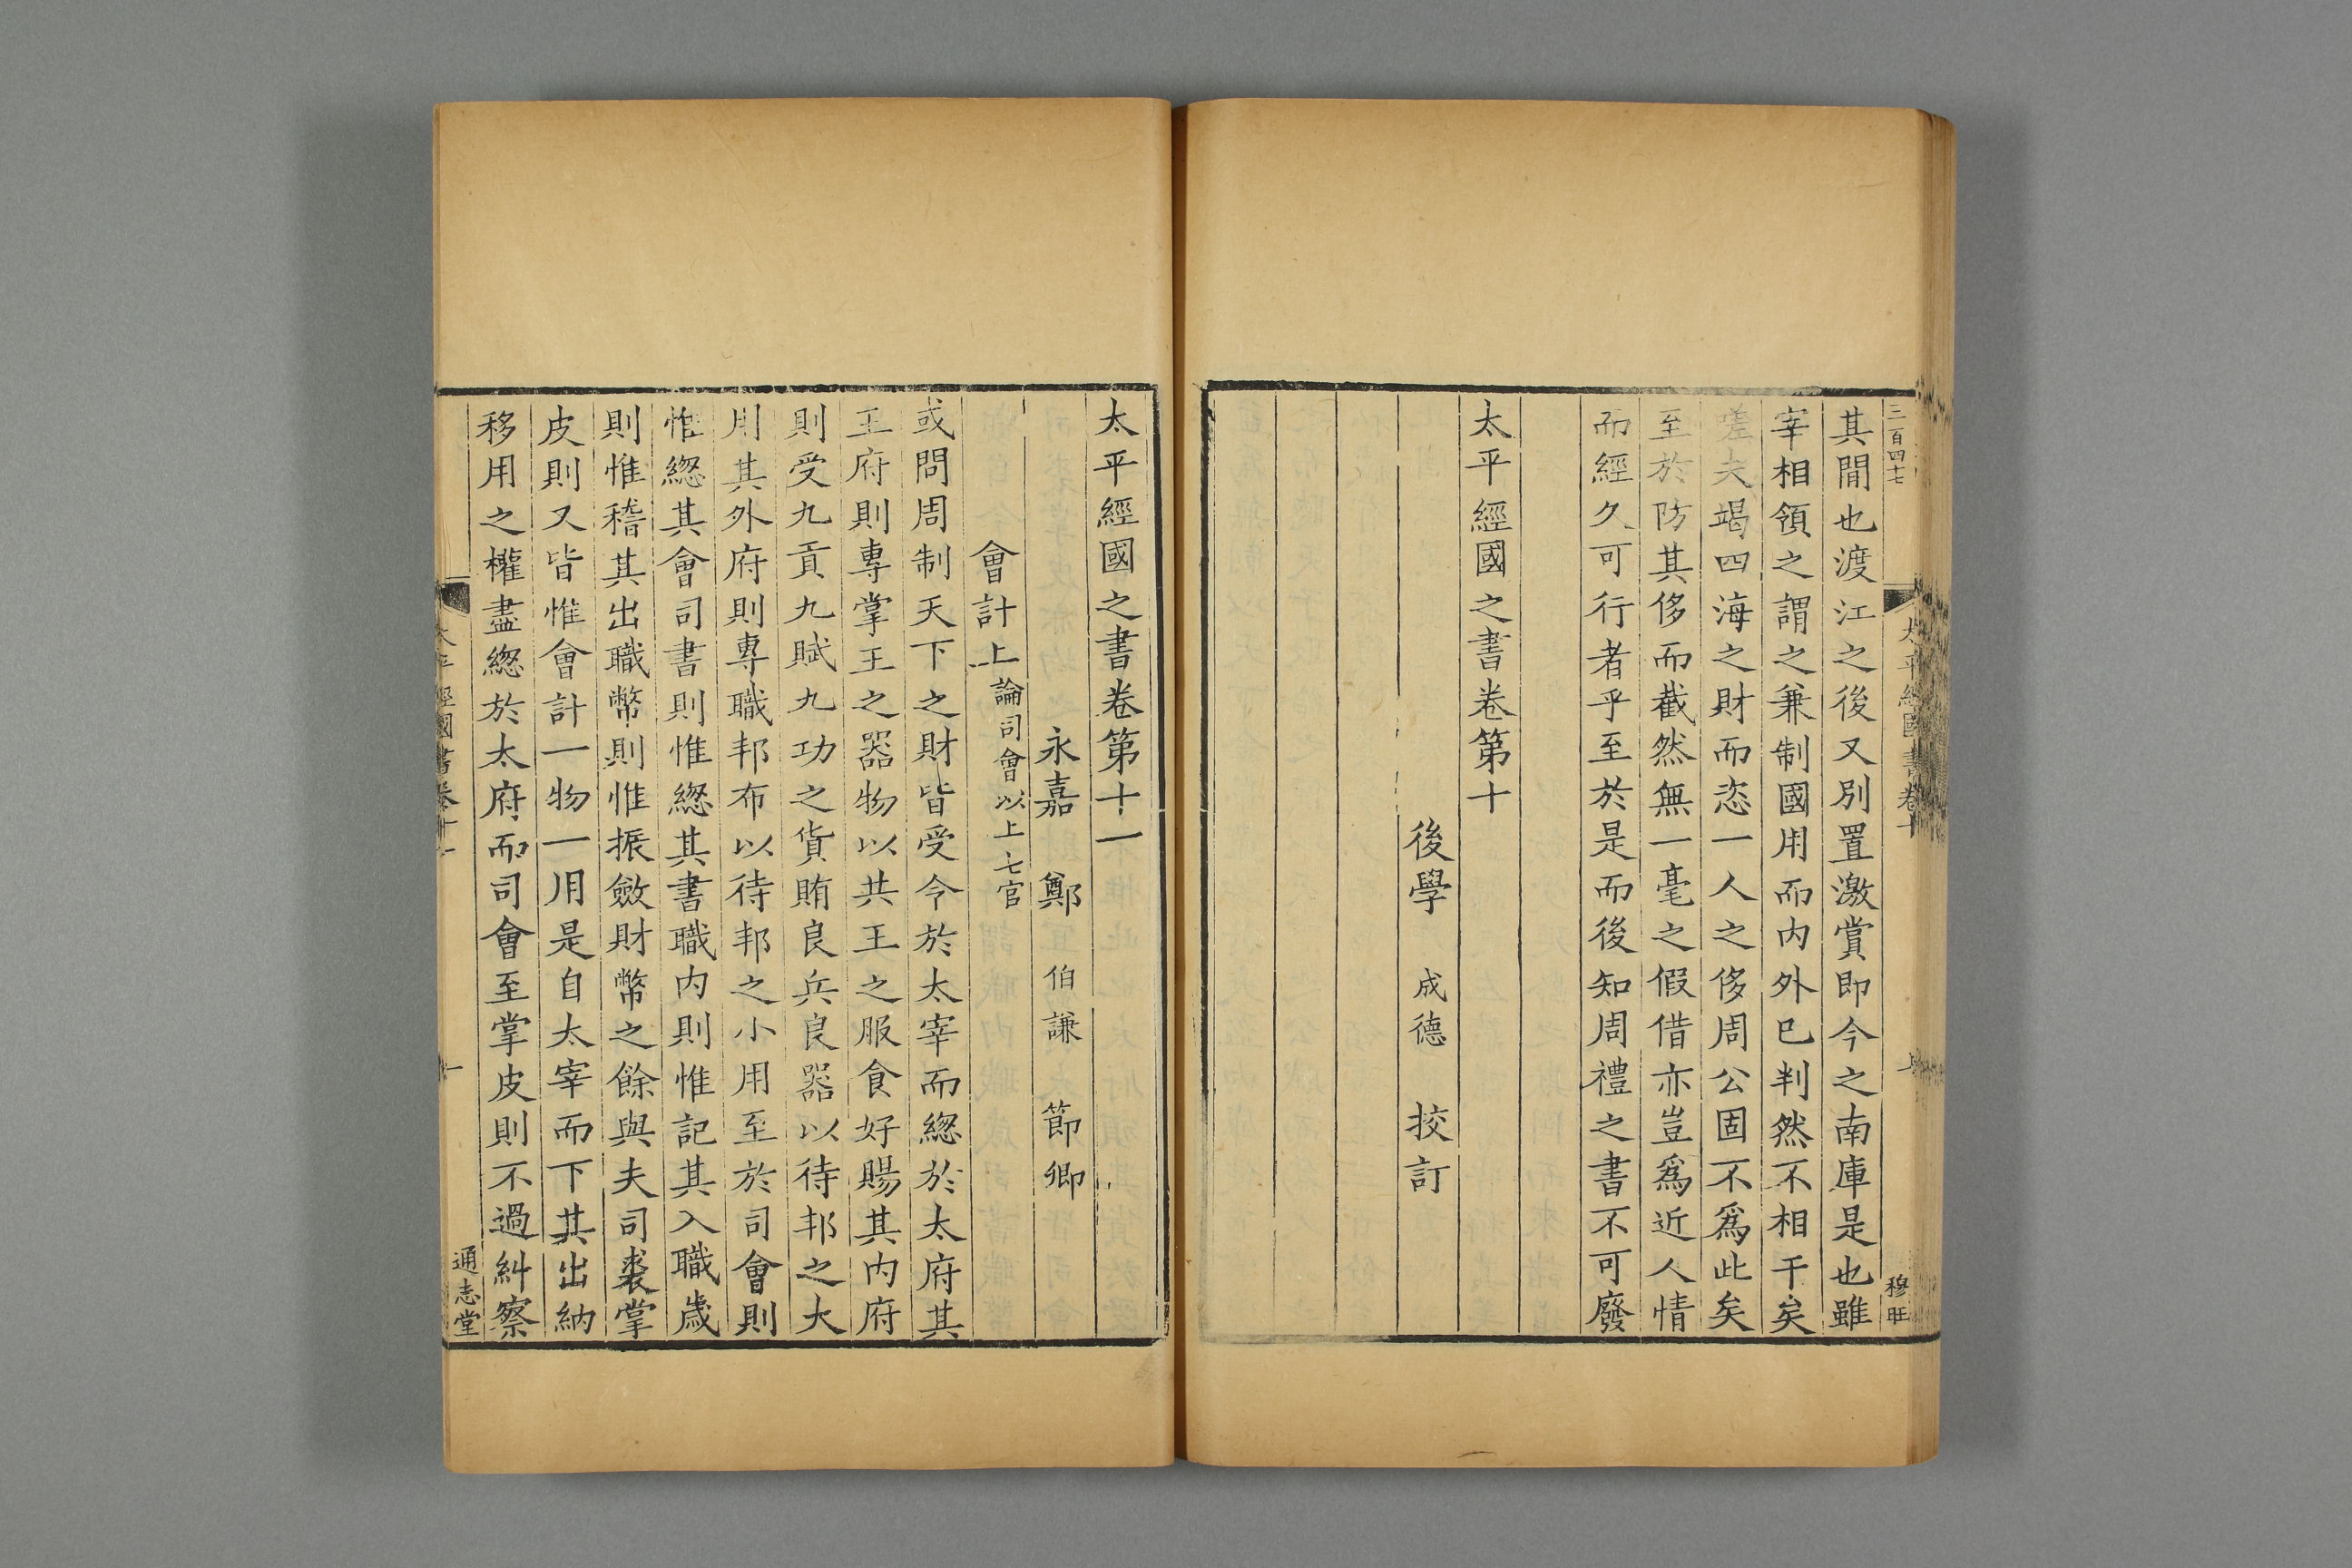 三百四十七
太平經國書卷十
穆旺
其間也渡江之後又別置激賞即今之南庫是也雖
宰相領之謂之兼制國用而内外已判然不相干矣
嗟夫竭四海之財而恣一人之侈周公固不爲此矣
至於防其侈而截然無一毫之假借亦豈爲近人情
而經久可行者乎至於是而後知周禮之書不可廢
太平經國之書卷第十
後學 成德 挍訂
太平經國之書卷第十一
永嘉 鄭 伯謙 節卿
會計上論司會以上七官
或問周制天下之財皆受令於太宰而緫於太府其
王府則專掌王之器物以共王之服食好賜其内府
則受九貢九賦九功之貨賄良兵良器以待邦之大
用其外府則專職邦布以待邦之小用至於司會則
惟緫其會司書則惟緫其書職内則惟記其入職歲
則惟稽其出職幣則惟振斂財幣之餘與夫司裘掌
皮則又皆惟會計一物一用是自太宰而下其出納
移用之權盡緫於太府而司會至掌皮則不過糾察
太平經國書卷十一
一
通志堂